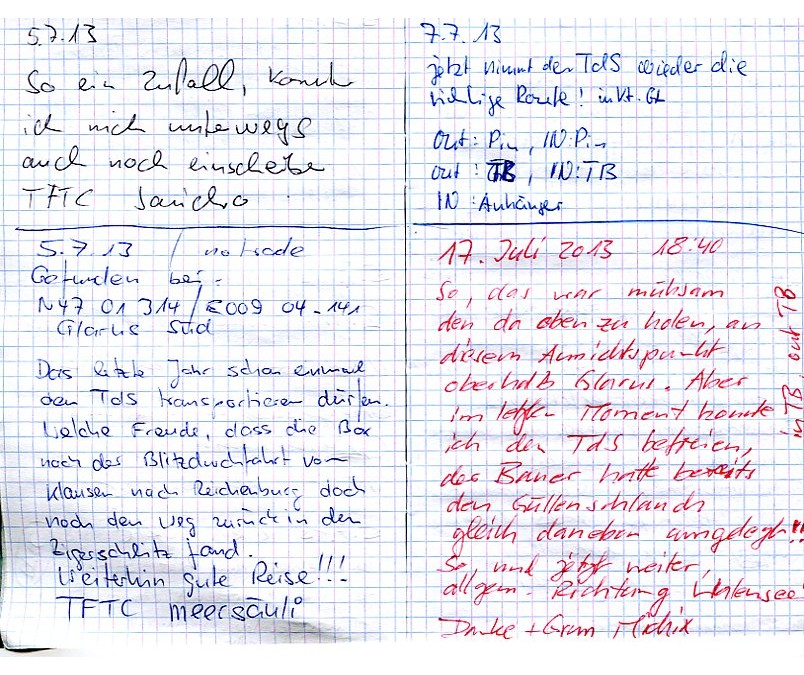 5.7.13
So ein Zufall, konnte
ich mich unterwegs
auch noch einscheibe
TFTC
5.7.13 / no trade
Gefunden bei:
N47 01 314 / E009 04 - 141
Glarus Süd
Das letzte Jahr schon einmal
den TdS transportieren dürfen.
Welche Freude, dass die Box
nach der Blitzdurchfahrt vom
Klausen nach Reichenburg doch
noch den Weg zurück in den
Zigerschlitz fand.
Weiterhin gute Reise!!!
TFTC meersäuli
7.7.13
jetzt nimmt der TdS wieder die
richtige Route! in Kt. GL
Out: Pin, IN: Pin
out: TB, IN: TB
IN: Anhänger
17. Juli 2013 18:40
So, das war mühsam
den da oben zu holen, an
diesem Aussichtspunkt
oberhalb Glarus. Aber
im letzten Moment konnte
ich den TdS befreien,
der Bauer hatte bereits
den Güllenschlauch
gleich daneben umgelegt!!
So, und jetzt weiter,
allgem. Richtung Walensee!
Danke + Gruss
in TB, out TB